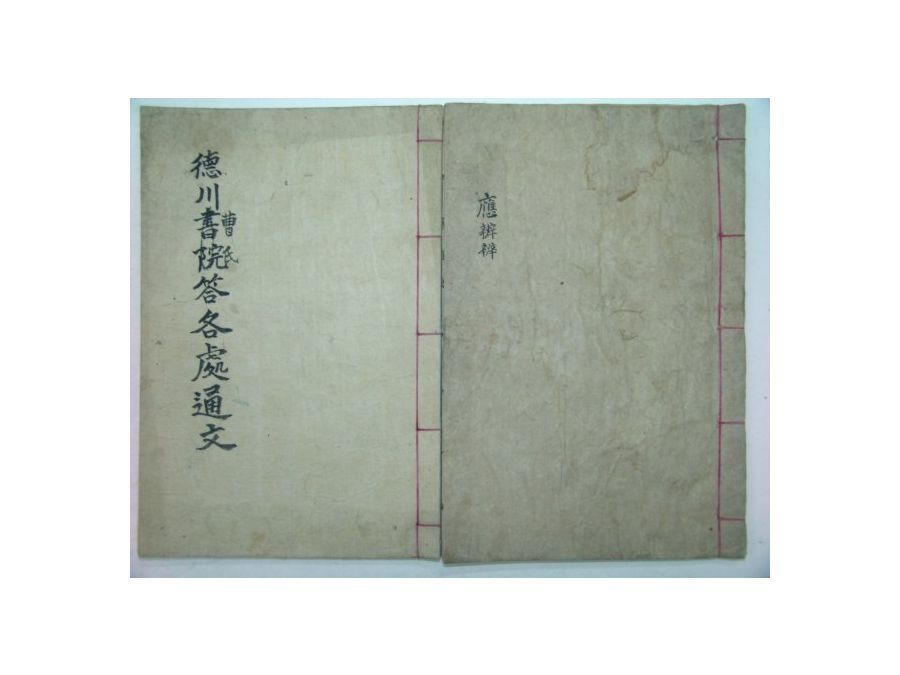 應辨辨
曹氏
德川書院答各處通文